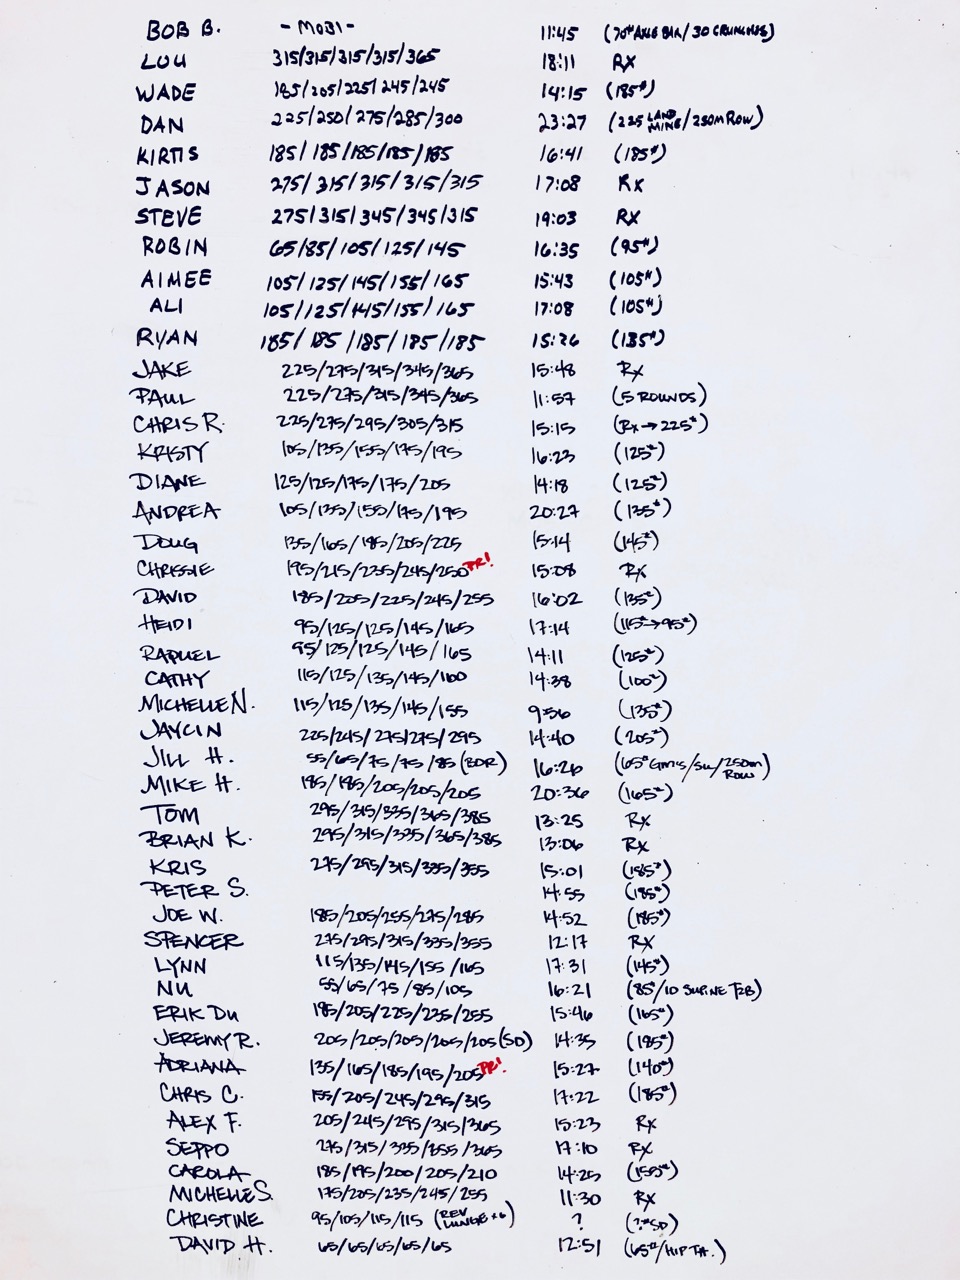 BOB B. -MOBI- 11:45 (70# AXLE BAR/30 CRUNCHES)
LOU 315/315/315/315/365 18:11 RX
WADE 185/205/225/245/245 14:15 (185#)
DAN 225/250/275/285/300 23:27 (225 LAND MINE/250M ROW)
KIRTIS 185/185/185/185/185 16:41 (185#)
JASON 275/315/315/315/315 17:08 RX
STEVE 275/315/345/345/315 19:03 RX
ROBIN 65/85/105/125/145 16:35 (95#)
AIMEE 105/125/145/155/165 15:43 (105#)
ALI 105/125/145/155/165 17:08 (105#)
RYAN 185/185/185/185/185 15:26 (135#)
JAKE 225/275/315/345/365 15:48 RX
PAUL 225/275/315/345/365 11:57 (5 ROUNDS)
CHRIS R. 225/275/295/305/315 15:15 (RX→225#)
KRISTY 105/135/155/175/195 16:23 (125#)
DIANE 125/125/175/175/205 14:18 (125#)
ANDREA 105/135/155/175/195 20:27 (135#)
DOUG 135/165/185/205/225 15:14 (145#)
CHRISSIE 195/215/235/245/250 PR! 15:08 RX
DAVID 185/205/225/245/255 16:02 (135#)
HEIDI 95/125/125/145/165 17:14 (115#→95#)
RAQUEL 95/125/125/145/165 14:11 (125#)
CATHY 115/125/135/145/160 14:38 (100#)
MICHELLE N. 115/125/135/145/155 9:56 (135#)
JAYCIN 225/245/275/275/295 14:40 (205#)
JILL H. 55/65/75/75/85 (BOR) 16:26 (65# GM'S/SU/250M ROW)
MIKE H. 185/185/205/205/205 20:36 (165#)
TOM 295/315/335/365/385 13:25 RX
BRIAN K. 295/315/335/365/385 13:06 RX
KRIS 275/295/315/335/355 15:01 (185#)
PETER S. 14:55 (185#)
JOE W. 185/205/255/275/285 14:52 (185#)
SPENCER 275/295/315/335/355 12:17 RX
LYNN 115/135/145/155/165 17:31 (145#)
NU 55/65/75/85/105 16:21 (85#/10 SUPINE T2B)
ERIK DU 185/205/225/235/255 15:46 (165#)
JEREMY R. 205/205/205/205/205 (SD) 14:35 (185#)
ADRIANA 135/165/185/195/205 PR! 15:27 (140#)
CHRIS C. 155/205/245/295/315 17:22 (185#)
ALEX F. 205/245/295/315/365 15:23 RX
SEPPO 275/315/335/355/365 17:10 RX
CAROLA 185/195/200/205/210 14:25 (155#)
MICHELLE S. 175/205/235/245/255 11:30 RX
CHRISTINE 95/105/115/115 (REV LUNGE x6) ? (?# SD)
DAVID H. 65/65/65/65/65 12:51 (65#/HIP TH.)